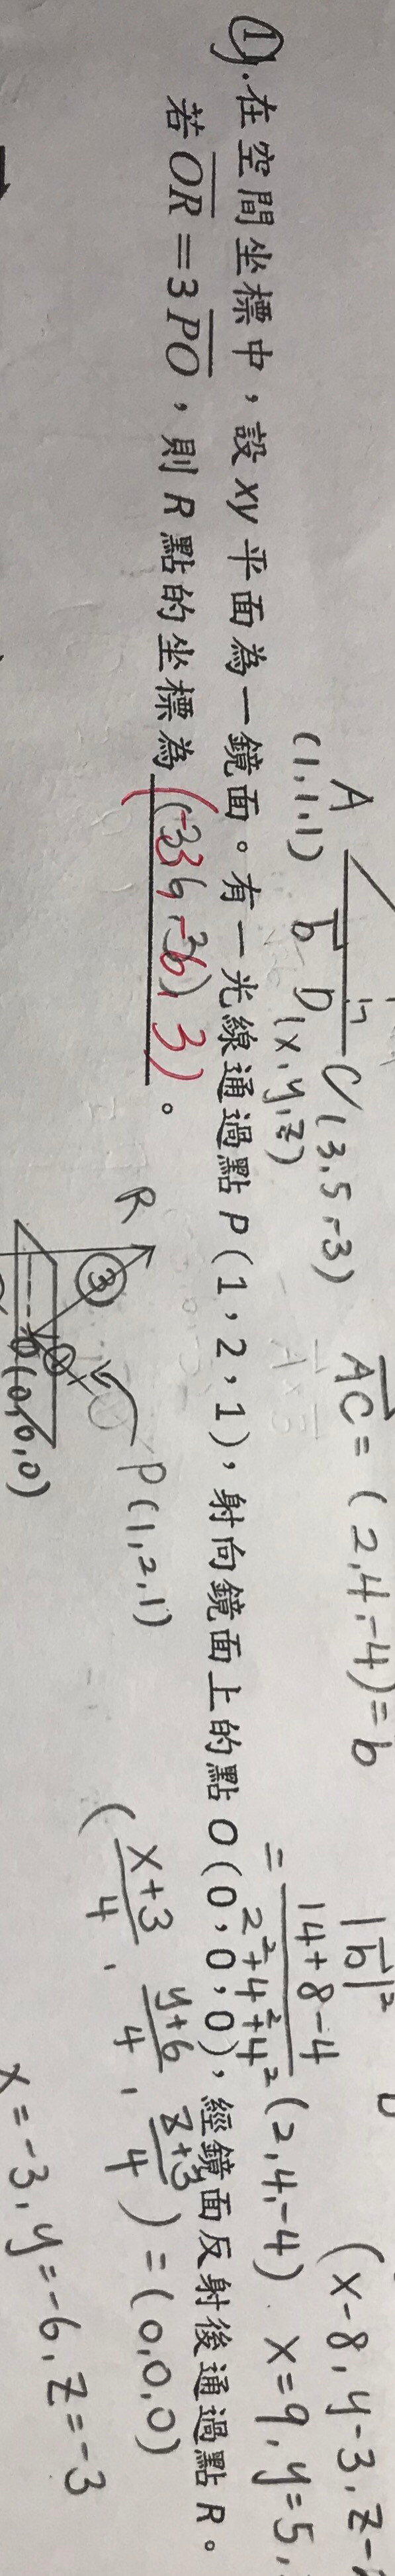 A
(1,1,1)
b
D(x,y,z)
C(3,5,-3)
AC = (2,4,-4) = b
|b|²
(x-8, y-3, z-
= 14+8-4 / 2²+4²+4² (2,4,-4)
x=9, y=5,
①.在空間坐標中,設 xy 平面為一鏡面。有一光線通過點 P(1,2,1),射向鏡面上的點 O(0,0,0),經鏡面反射後通過點 R。
若 OR = 3PO,則 R 點的坐標為 (-3,-6,3)。
R
③
P(1,2,1)
O(0,0,0)
(x+3/4, y+6/4, z+3/4) = (0,0,0)
x=-3, y=-6, z=-3